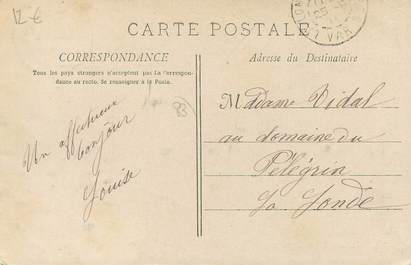 12 €
CARTE POSTALE
CORRESPONDANCE
Tous les pays étrangers n'acceptent pas la Correspon-
dance au recto. Se renseigner à la Poste.
Un affectueux
bonjour
Louise
83
Adresse du Destinataire
Madame Vidal
au domaine du
Pélégrin
La Londe
VAR